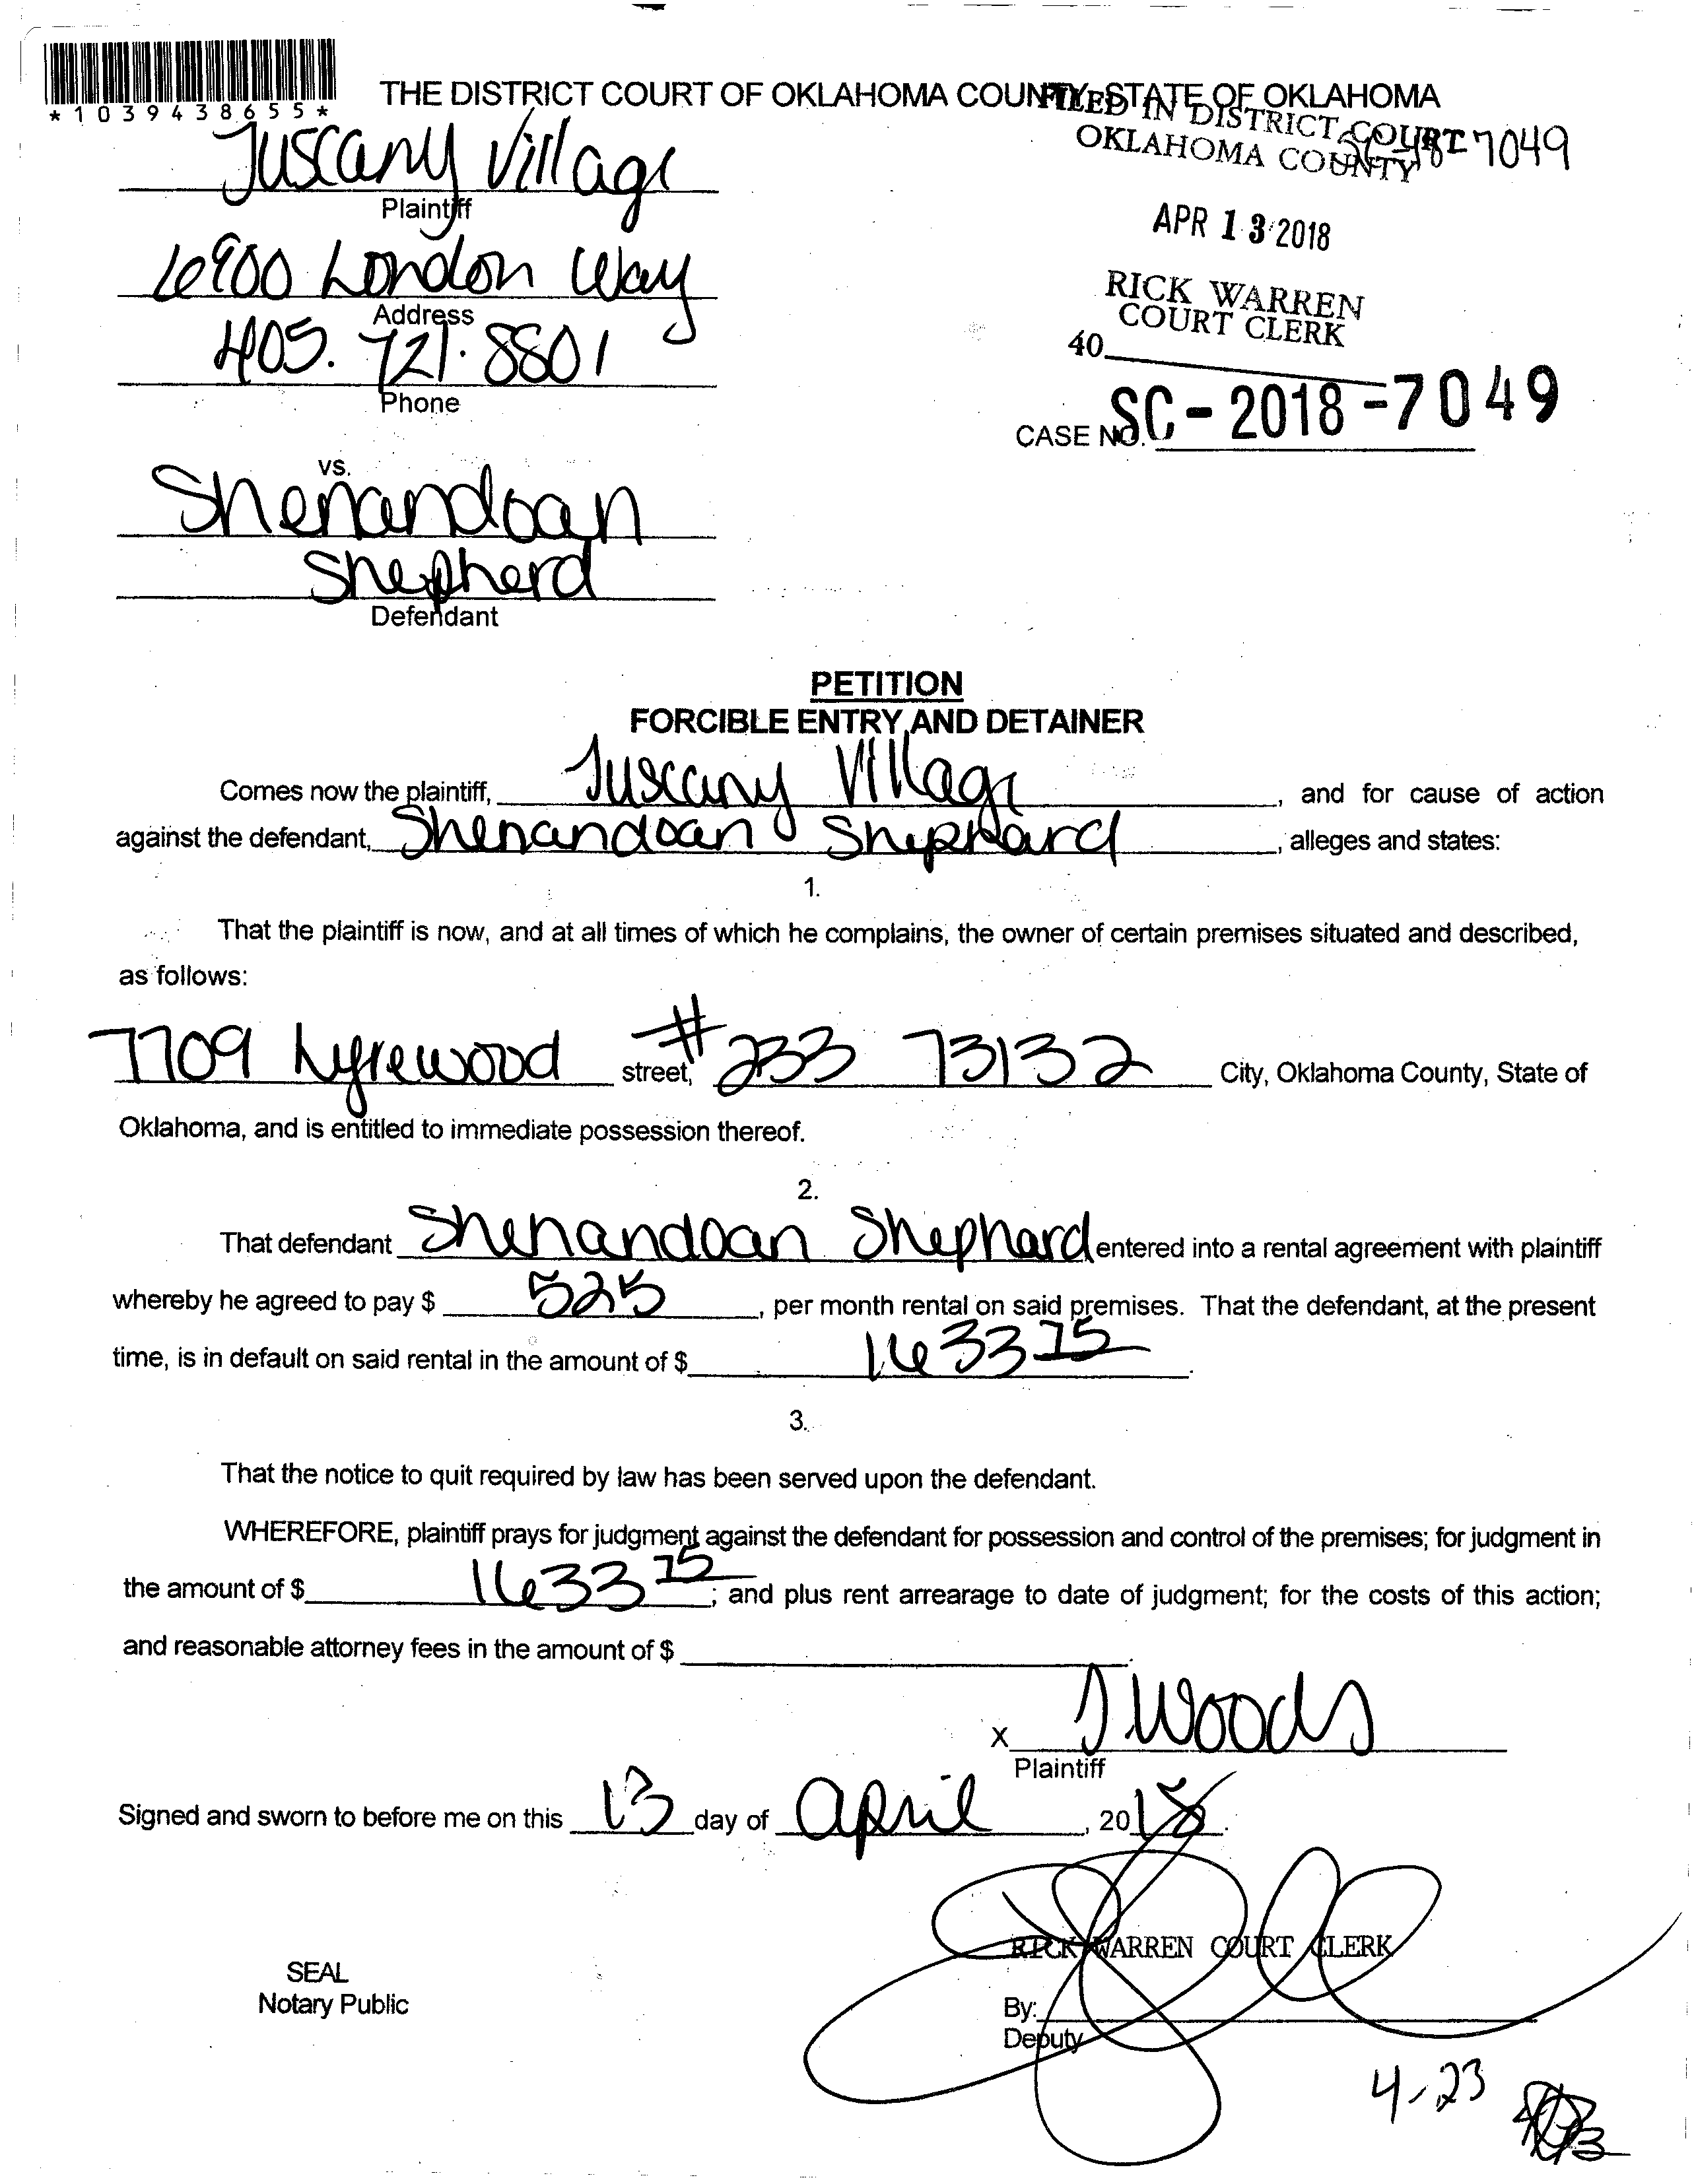 *1039438655*
THE DISTRICT COURT OF OKLAHOMA COUNTY, STATE OF OKLAHOMA
FILED IN DISTRICT COURT
OKLAHOMA COUNTY
7049
Tuscany Village
Plaintiff
APR 13 2018
6900 London Way
Address
RICK WARREN
COURT CLERK
405.721.8801
Phone
40
CASE NO. SC-2018-7049
vs.
Shenandoan
Shepherd
Defendant
PETITION
FORCIBLE ENTRY AND DETAINER
Comes now the plaintiff, Tuscany Village, and for cause of action
against the defendant, Shenandoan Shephard, alleges and states:
1.
That the plaintiff is now, and at all times of which he complains, the owner of certain premises situated and described,
as follows:
7709 Lyrewood street, #233 73132 City, Oklahoma County, State of
Oklahoma, and is entitled to immediate possession thereof.
2.
That defendant Shenandoan Shephard entered into a rental agreement with plaintiff
whereby he agreed to pay $ 525, per month rental on said premises. That the defendant, at the present
time, is in default on said rental in the amount of $ 1633 75.
3.
That the notice to quit required by law has been served upon the defendant.
WHEREFORE, plaintiff prays for judgment against the defendant for possession and control of the premises; for judgment in
the amount of $ 1633 75; and plus rent arrearage to date of judgment; for the costs of this action;
and reasonable attorney fees in the amount of $ .
X J Woods
Plaintiff
Signed and sworn to before me on this 13 day of april, 2018.
RICK WARREN COURT CLERK
SEAL
Notary Public
By:
Deputy
4-23